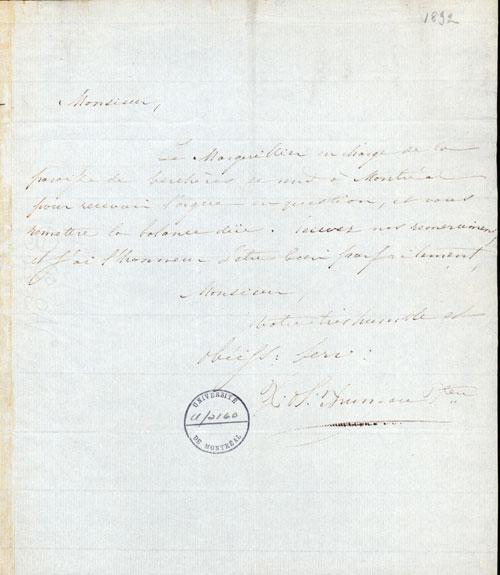 1892
Monsieur,
Le Marguillier en charge de la
paroisse de Verchères se rend à Montréal
pour recevoir l'orgue en question, et vous
remettre la balance dûe. Recevez nos remerciemens
et j'ai l'honneur d'être bien parfaitement,
Monsieur,
Votre très humble et
obéiss: serv:
Ptre
UNIVERSITÉ
U/2160
DE MONTRÉAL